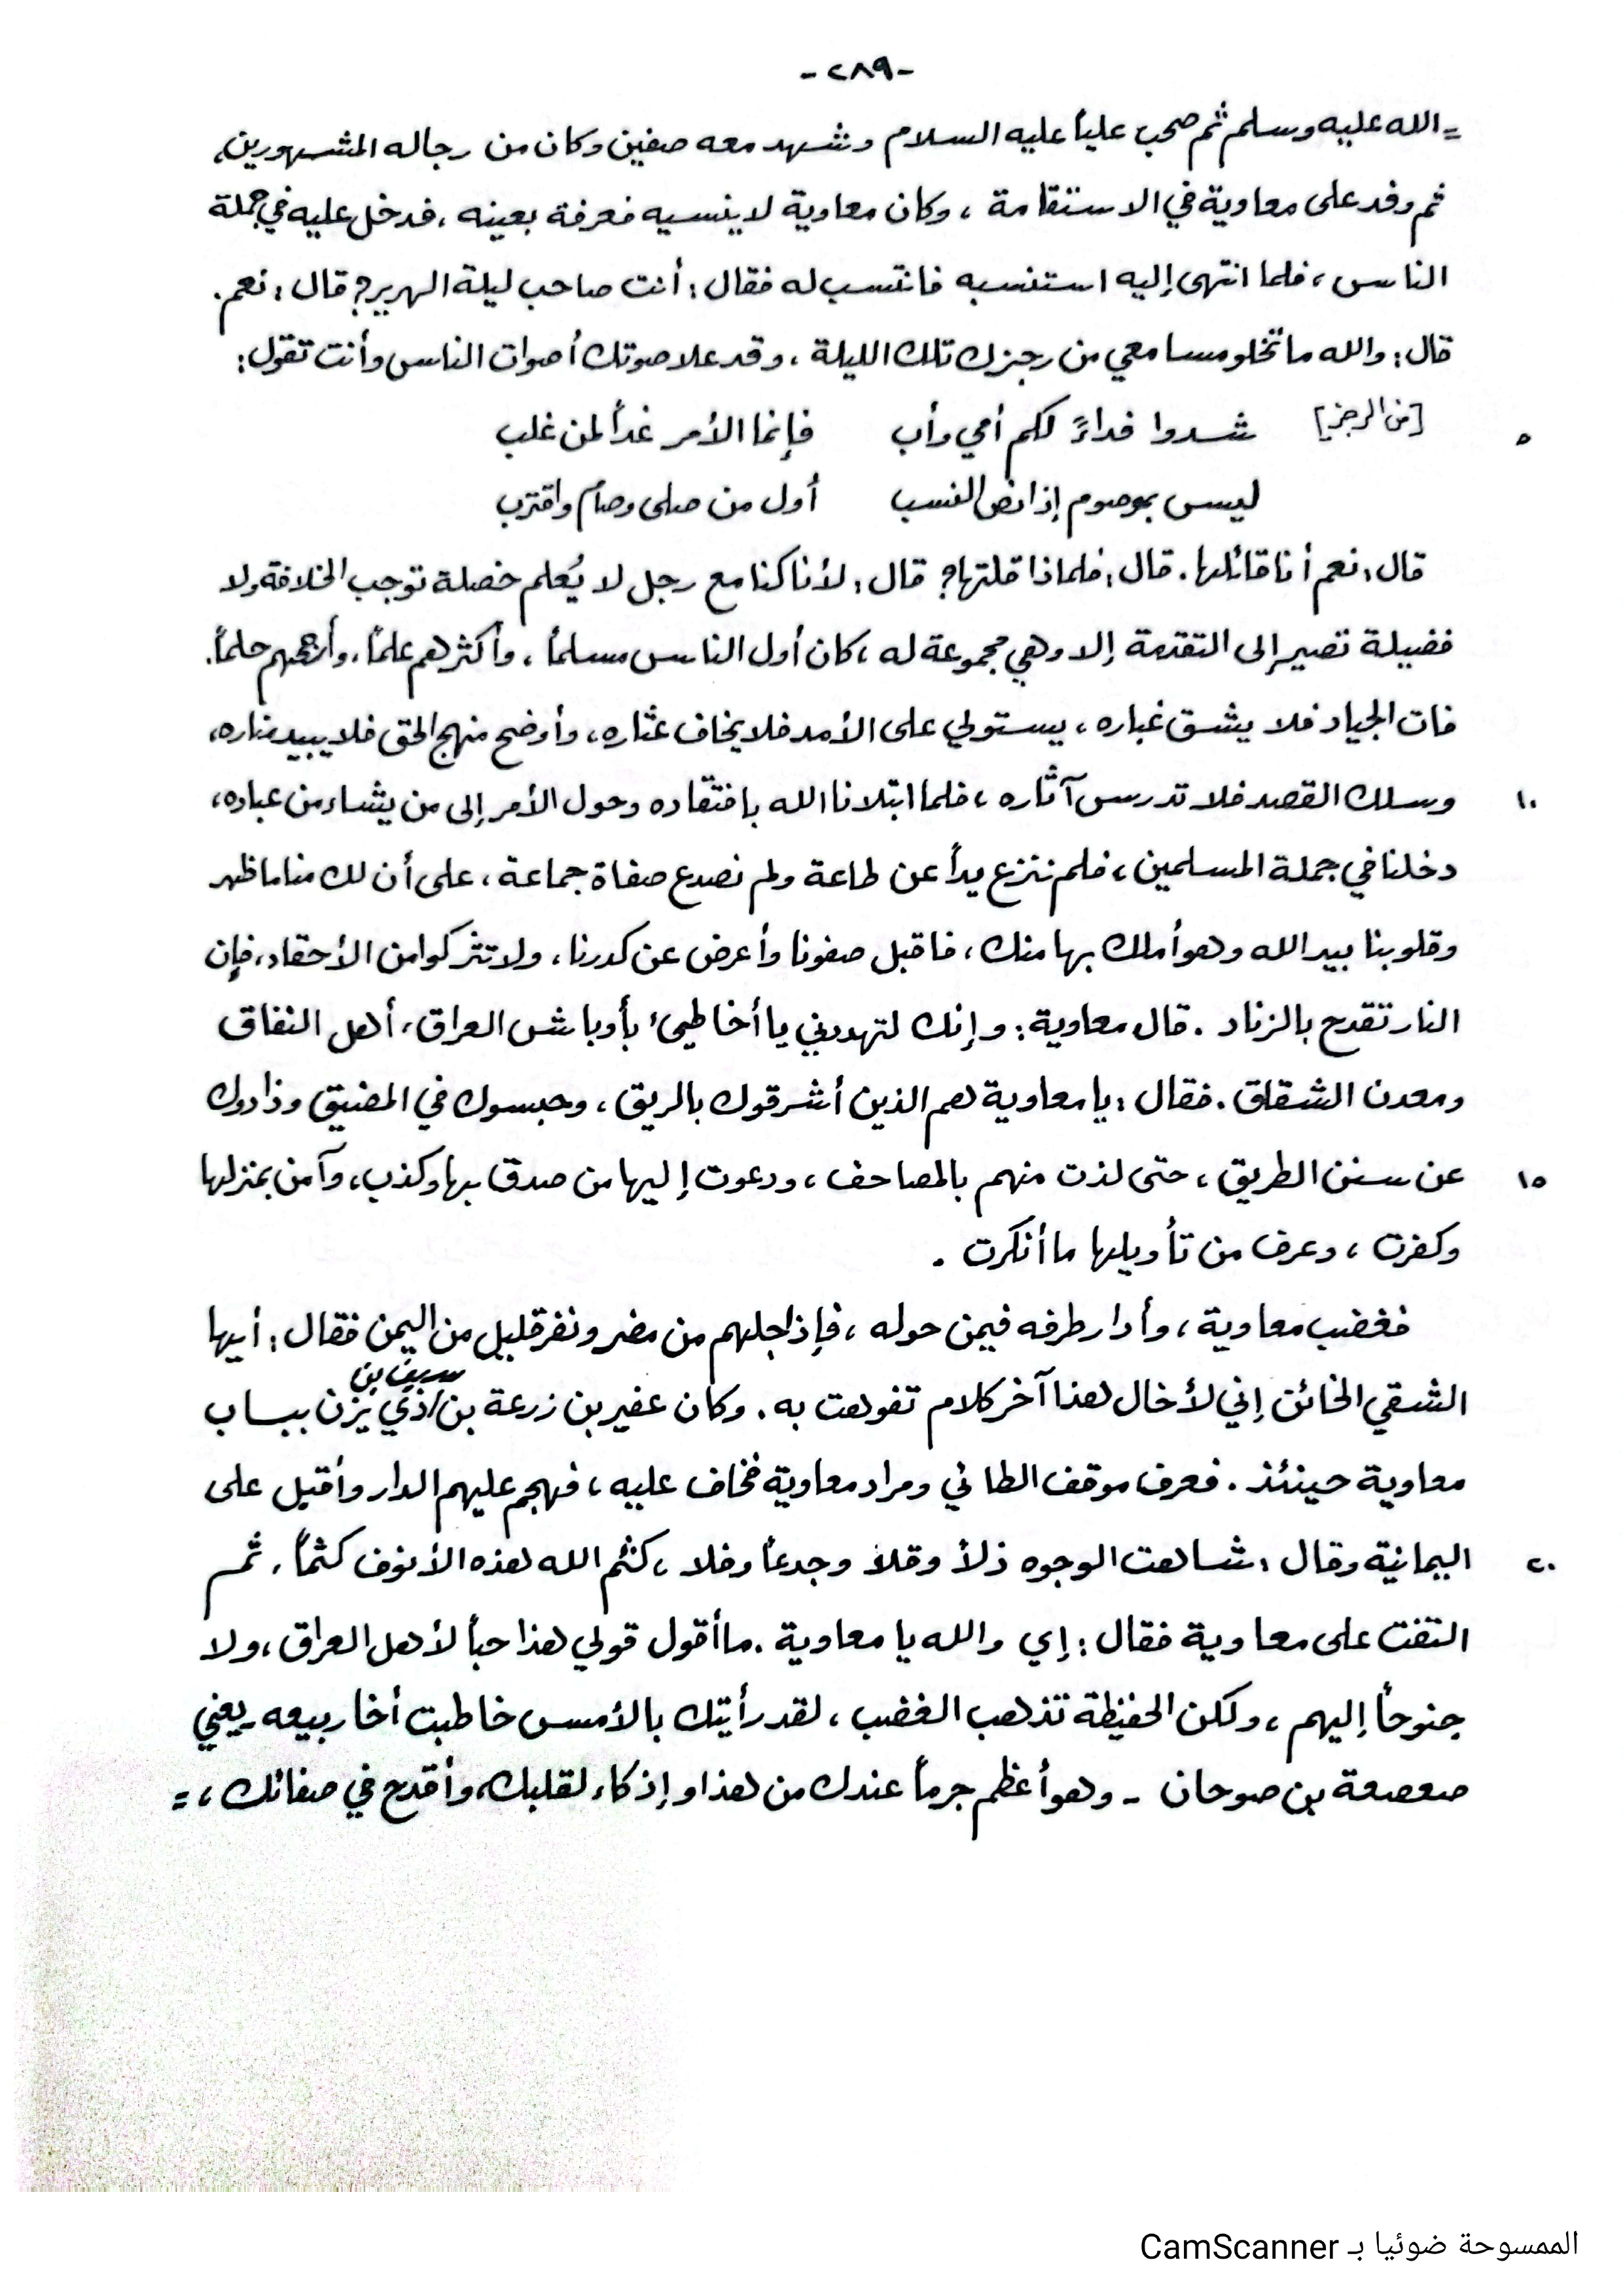 -٢٨٩-
= الله عليه وسلم ثم صحب علياً عليه السلام وشهد معه صفين وكان من رجاله المشهورين،
ثم وفد على معاوية في الاستقامة ، وكان معاوية لا ينسيه فعرفة بعينه ، فدخل عليه في جملة
الناس ، فلما انتهى إليه استنسبه فانتسب له فقال : أنت صاحب ليلة الهرير؟ قال : نعم .
قال : والله ما تخلو مسامعي من رجزك تلك الليلة ، وقد علا صوتك أصوات الناس وأنت تقول :
٥ [من الرجز] شدوا فداءً لكم أمي وأب فإنما الأمر غداً لمن غلب
ليس بموصوم إذا نص النسب أول من صلى وصام واقترب
قال : نعم أنا قائلها . قال : فلماذا قلتها؟ قال : لأنا كنا مع رجل لا يُعلم خصلة توجب الخلافة ولا
فضيلة تصير إلى التقدمة إلا وهي مجموعة له ، كان أول الناس مسلماً ، وأكثرهم علماً ، وأرجحهم حلماً .
فات الجياد فلا يشق غباره ، يستولي على الأمد فلا يخاف عثاره ، وأوضح منهج الحق فلا يبيد مناره ،
١٠ وسلك القصد فلا تدرس آثاره ، فلما ابتلانا الله بافتقاده وحول الأمر إلى من يشاء من عباده ،
دخلنا في جملة المسلمين ، فلم ننزع يداً عن طاعة ولم نصدع صفاة جماعة ، على أن لك منا ما ظهر
وقلوبنا بيد الله وهو أملك بها منك ، فاقبل صفونا وأعرض عن كدرنا ، ولا تثر كوامن الأحقاد ، فإن
النار تقدح بالزناد . قال معاوية : وإنك لتهددني يا أخا طيئ بأوباش العراق ، أهل النفاق
ومعدن الشقاق . فقال : يا معاوية هم الذين أشرقوك بالريق ، وحبسوك في المضيق وذادوك
١٥ عن سنن الطريق ، حتى لذت منهم بالمصاحف ، ودعوت إليها من صدق بها وكذب ، وآمن بمنزلها
وكفرت ، وعرف من تأويلها ما أنكرت .
فغضب معاوية ، وأدار طرفه فيمن حوله ، فإذا جلهم من مضر ونفر قليل من اليمن فقال : أيها
الشقي الخائن إني لأخال هذا آخر كلام تفوهت به . وكان عفير بن زرعة بن سيف بن ذي يزن ببـاب
معاوية حينئذ . فعرف موقف الطائي ومراد معاوية فخاف عليه ، فهجم عليهم الدار وأقبل على
٢٠ اليمانية وقال : شاهت الوجوه ذلاً وقلاً وجدعاً وفلا ، كثم الله هذه الأنوف كثماً . ثم
التفت على معاوية فقال : إي والله يا معاوية . ما أقول قولي هذا حباً لأهل العراق ، ولا
جنوحاً إليهم ، ولكن الحفيظة تذهب الغضب ، لقد رأيتك بالأمس خاطبت أخا ربيعه - يعني
صعصعة بن صوحان - وهو أعظم جرماً عندك من هذا وإذكاء لقلبك، وأقدح في صفائك ، =
الممسوحة ضوئيا بـ CamScanner